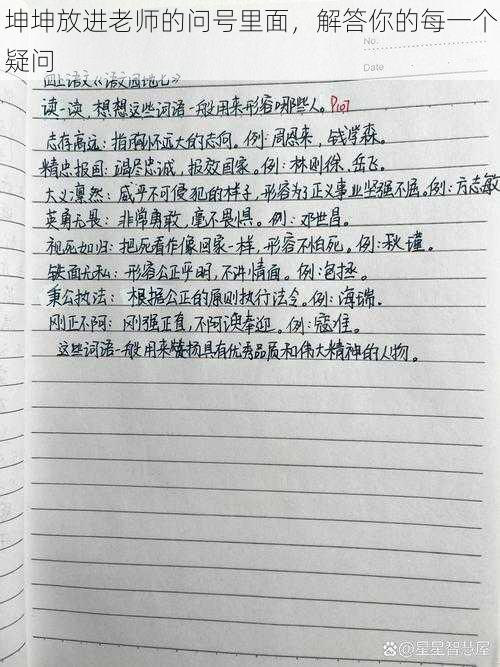 坤坤放进老师的问号里面，解答你的每一个
疑问
No.
Date
四上语文《语文园地七》
读一读，想想这些词语一般用来形容哪些人。P107
志存高远：指胸怀远大的志向。例：周恩来，钱学森。
精忠报国：竭尽忠诚，报效国家。例：林则徐、岳飞。
大义凛然：威严不可侵犯的样子，形容为了正义事业坚强不屈。例：方志敏
英勇无畏：非常勇敢，毫不畏惧。例：邓世昌。
视死如归：把死看作像回家一样，形容不怕死。例：秋瑾。
铁面无私：形容公正严明，不讲情面。例：包拯。
秉公执法：根据公正的原则执行法令。例：海瑞。
刚正不阿：刚强正直，不阿谀奉迎。例：寇准。
这些词语一般用来赞扬具有优秀品质和伟大精神的人物。
@星星智慧屋